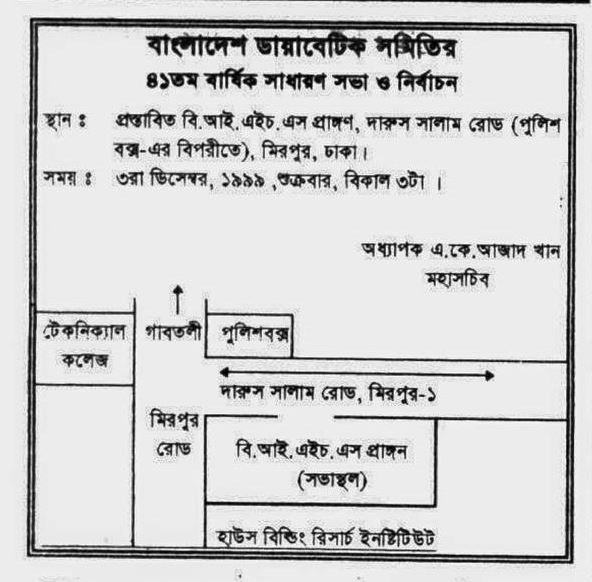 বাংলাদেশ ডায়াবেটিক সমিতির
৪১তম বার্ষিক সাধারণ সভা ও নির্বাচন
স্থান : প্রস্তাবিত বি.আই.এইচ.এস প্রাঙ্গণ, দারুস সালাম রোড (পুলিশ
বক্স-এর বিপরীতে), মিরপুর, ঢাকা।
সময় : ৩রা ডিসেম্বর, ১৯৯৯ ,শুক্রবার, বিকাল ৩টা ।
অধ্যাপক এ.কে.আজাদ খান
মহাসচিব
টেকনিক্যাল
কলেজ
গাবতলী
পুলিশবক্স
দারুস সালাম রোড, মিরপুর-১
মিরপুর
রোড
বি.আই.এইচ.এস প্রাঙ্গন
(সভাস্থল)
হাউস বিল্ডিং রিসার্চ ইনষ্টিটিউট